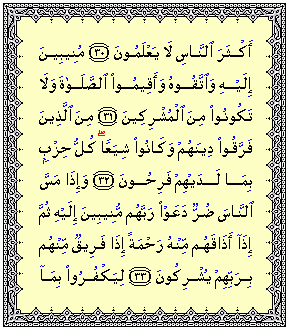 أَكْثَرَ ٱلنَّاسِ لَا يَعْلَمُونَ ﴿٣٠﴾ مُنِيبِينَ
إِلَيْهِ وَٱتَّقُوهُ وَأَقِيمُوا۟ ٱلصَّلَوٰةَ وَلَا
تَكُونُوا۟ مِنَ ٱلْمُشْرِكِينَ ﴿٣١﴾ مِنَ ٱلَّذِينَ
فَرَّقُوا۟ دِينَهُمْ وَكَانُوا۟ شِيَعًا ۖ كُلُّ حِزْبٍۭ
بِمَا لَدَيْهِمْ فَرِحُونَ ﴿٣٢﴾ وَإِذَا مَسَّ
ٱلنَّاسَ ضُرٌّ دَعَوْا۟ رَبَّهُم مُّنِيبِينَ إِلَيْهِ ثُمَّ
إِذَآ أَذَاقَهُم مِّنْهُ رَحْمَةً إِذَا فَرِيقٌ مِّنْهُم
بِرَبِّهِمْ يُشْرِكُونَ ﴿٣٣﴾ لِيَكْفُرُوا۟ بِمَآ